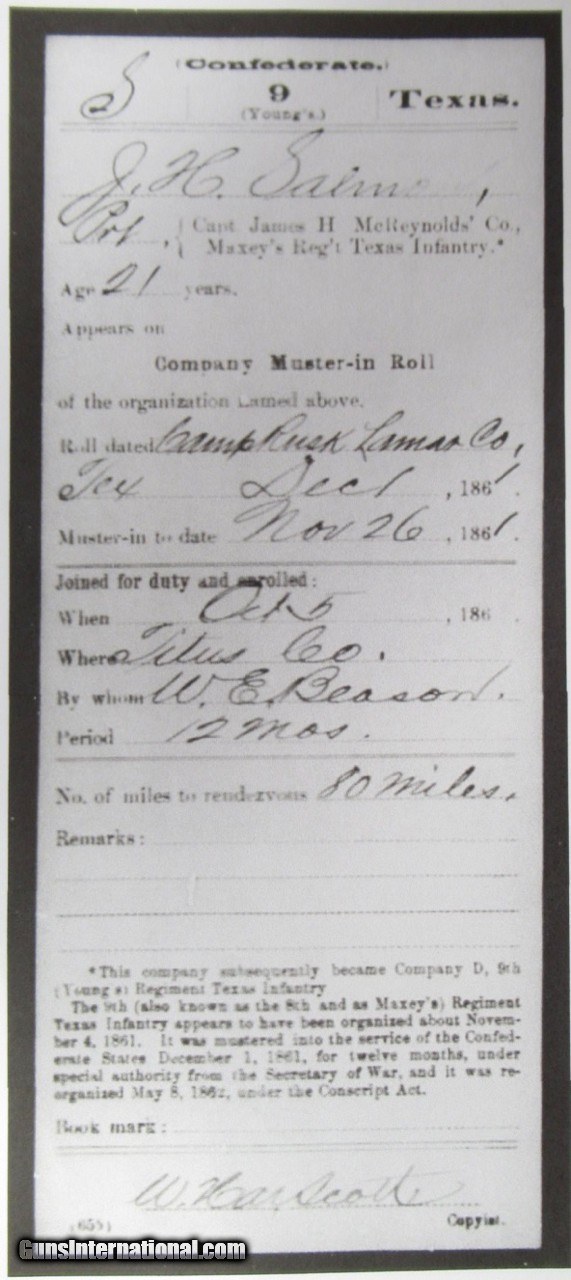 S
(Confederate.)
9
(Young's.)
Texas.
J. H. Salmon,
Pvt, { Capt. James H McReynolds' Co.,
Maxey's Reg't Texas Infantry.*
Age 21 years.
Appears on
Company Muster-in Roll
of the organization named above.
Roll dated Camp Rusk Lamar Co,
Tex Dec 1, 1861.
Muster-in to date Nov 26, 1861.
Joined for duty and enrolled:
When Oct 5, 186
Where Titus Co.
By whom W. E. Beason.
Period 12 mos.
No. of miles to rendezvous 80 miles.
Remarks:
*This company subsequently became Company D, 9th
(Young's) Regiment Texas Infantry
The 9th (also known as the 8th and as Maxey's) Regiment
Texas Infantry appears to have been organized about Novem-
ber 4, 1861. It was mustered into the service of the Confed-
erate States December 1, 1861, for twelve months, under
special authority from the Secretary of War, and it was re-
organized May 8, 1862, under the Conscript Act.
Book mark:
Copyist.
GunsInternational.com